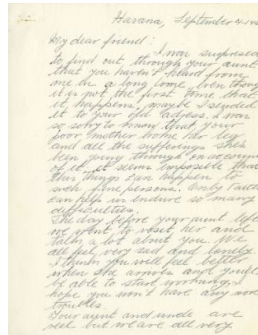 Havana, September 4, 19
My dear friend:
I was surprised
to find out through your aunt
that you haven't heard from
me in a long time, even though
it is not the first time that
it happens, maybe I sended
it to your old adress. I am
so sorry to know that your
poor mother broke her leg
and all the sufferings she's
been going through on account
of it, it seems impossible that
this things can happen to
such fine persons. Only Faith
can help us endure so many
difficulties.
The day before your aunt left
we went to visit her and
talk a lot about you. We
all feel very sad and lonely
I think you will feel better
when she arrives and you'll
be able to start working, I
hope you won't have any more
troubles.
Your aunt and uncle are
well but we are all very